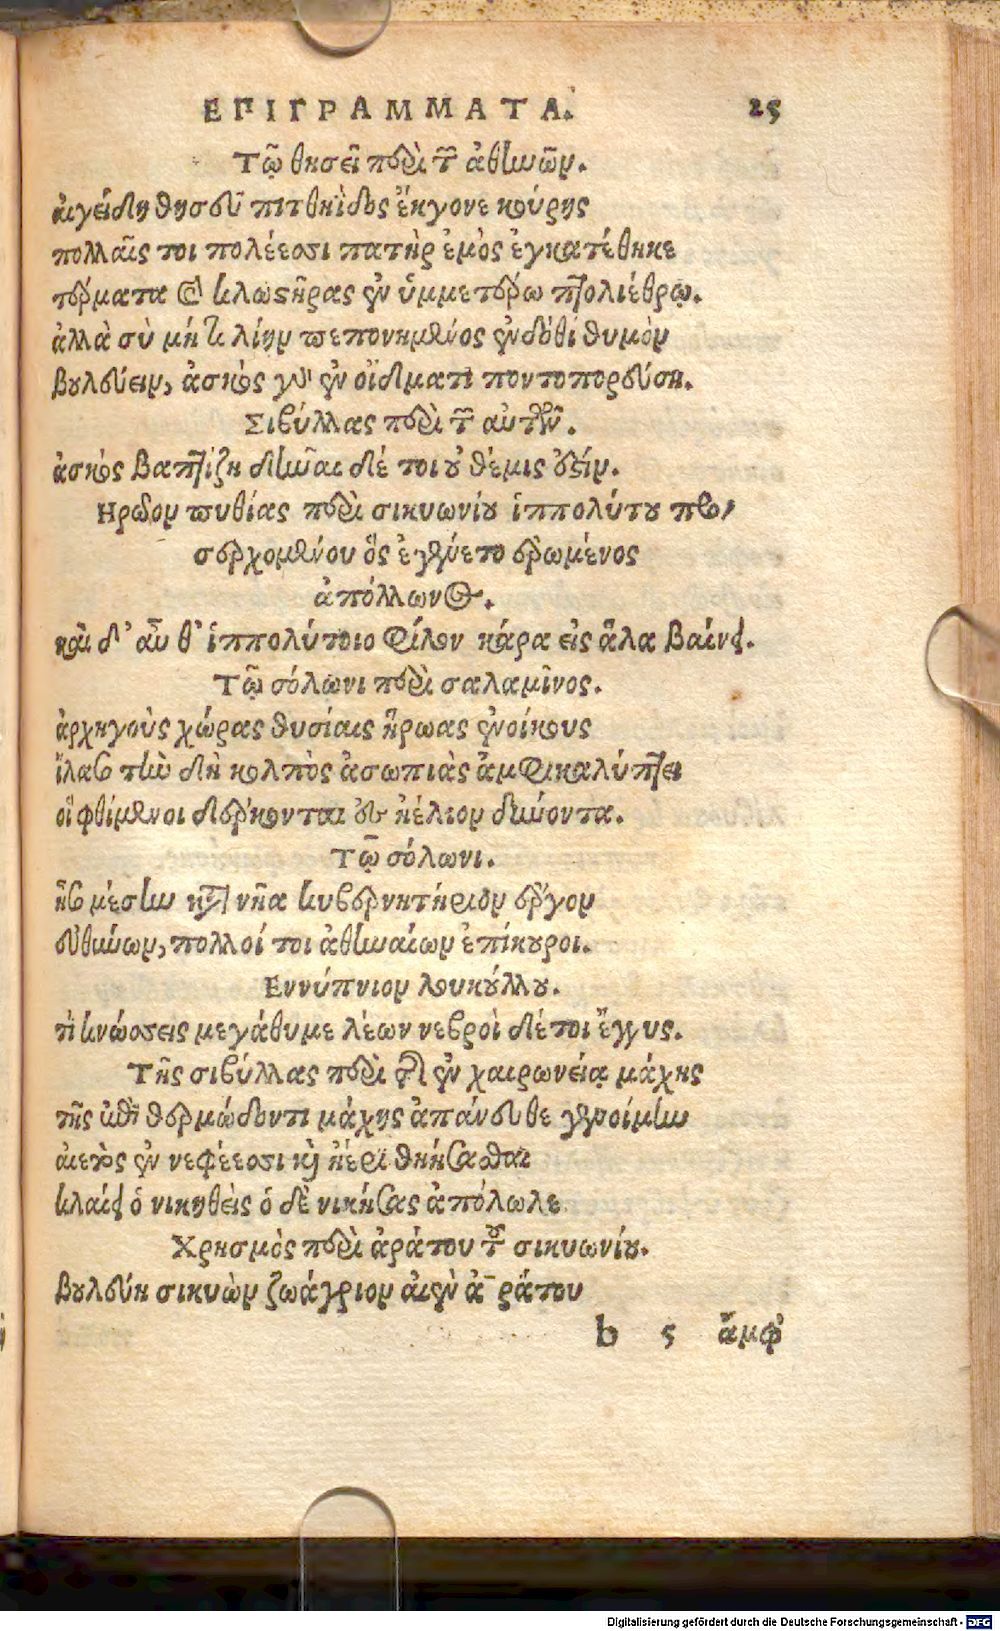 ΕΠΙΓΡΑΜΜΑΤΑ. 25
Τῷ θησεῖ περὶ τῶν ἀθηνῶν.
αἰγείδη θησεῦ πιτθηΐδος ἔκγονε κούρης
πολλαῖς τοι πολέεσσι πατὴρ ἐμὸς ἐγκατέθηκε
τέρματα καὶ κλωστῆρας ἐν ὑμμετέρω πτολιέθρῳ.
ἀλλὰ σὺ μή τι λίην πεπονημένος ἔνδοθι θυμὸν
βουλεύειν, ἀσκὸς γὰρ ἐν οἴδματι ποντοπορεύση.
Σιβύλλας περὶ τῶν αὐτῶν.
ἀσκὸς βαπτίζη δῦναι δέ τοι οὐ θέμις ἐστίν.
Ηρῶον πυθίας περὶ σικυωνίου ἱππολύτου προ-
σερχομένου ὃς ἐγένετο ἐρωμένος
ἀπόλλωνος.
καὶ δ' αὖ θ' ἱππολύτοιο φίλον κάρα εἰς ἅλα βαίνει.
Τῷ σόλωνι περὶ σαλαμῖνος.
ἀρχηγοὺς χώρας θυσίαις ἥρωας ἐνοίκους
ἵλασο τοὺς δὴ κολπὸς ἀσωπιὰς ἀμφικαλύπτει
οἳ φθίμενοι δέρκονται ἐς ἠέλιον δύνοντα.
Τῷ σόλωνι.
ἧσο μέσην κατὰ νῆα κυβερνητήριον ἔργον
εὐθύνων, πολλοί τοι ἀθηναίων ἐπίκουροι.
Εννύπνιον λουκούλλου.
τί κνώσσεις μεγάθυμε λέων νεβροὶ δέ τοι ἔγγυς.
Τῆς σιβύλλας περὶ τῆς ἐν χαιρωνείᾳ μάχης
τῆς ἐπὶ θερμώδοντι μάχης ἀπάνευθε γενοίμην
αἰετὸς ἐν νεφέεσσι καὶ ἠέρι θηήσασθαι
κλαίει ὁ νικηθεὶς ὁ δὲ νικήσας ἀπόλωλε
Χρησμὸς περὶ ἀράτου τοῦ σικυωνίου.
βουλεύη σικυὼν ζωάγριον αἰὲν ἀράτου
b 5 ἀμφ'
Digitalisierung gefördert durch die Deutsche Forschungsgemeinschaft - DFG